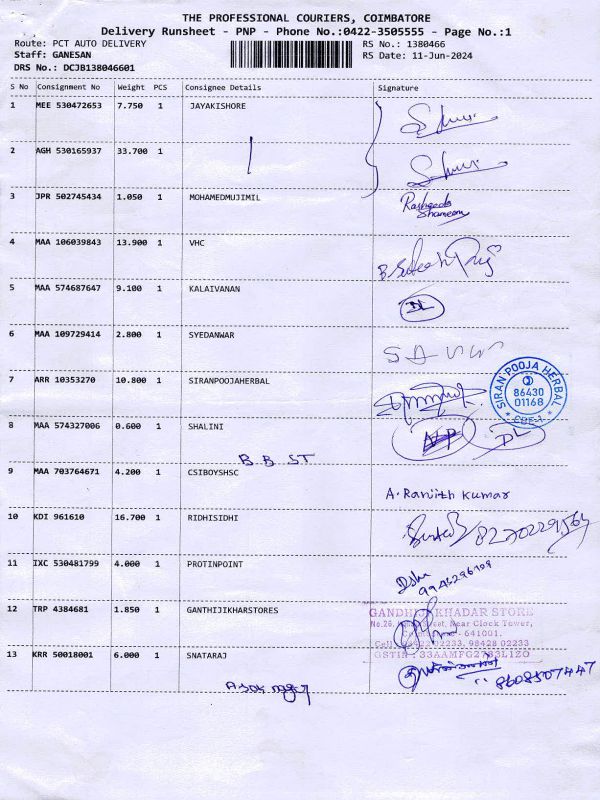 THE PROFESSIONAL COURIERS, COIMBATORE
Delivery Runsheet - PNP - Phone No.:0422-3505555 - Page No.:1
Route: PCT AUTO DELIVERY RS No.: 1380466
Staff: GANESAN RS Date: 11-Jun-2024
DRS No.: DCJB138046601
S No Consignment No Weight PCS Consignee Details Signature
1 MEE 530472653 7.750 1 JAYAKISHORE
2 AGH 530165937 33.700 1
3 JPR 502745434 1.050 1 MOHAMEDMUJIMIL Rasheeda
Shameem
4 MAA 106039843 13.900 1 VHC
5 MAA 574687647 9.100 1 KALAIVANAN
6 MAA 109729414 2.800 1 SYEDANWAR
7 ARR 10353270 10.800 1 SIRANPOOJAHERBAL
SIRAN POOJA HERBAL
86430
01168
CBE-1
8 MAA 574327006 0.600 1 SHALINI
DL
B.B ST
9 MAA 703764671 4.200 1 CSIBOYSHSC
A. Ranjith Kumar
10 KDI 961610 16.700 1 RIDHISIDHI
11 IXC 530481799 4.000 1 PROTINPOINT
12 TRP 4384681 1.850 1 GANTHIJIKHARSTORES
KHADAR STORE
Street, Near Clock Tower,
- 641001.
02233, 98428 02233
13 KRR 50018001 6.000 1 SNATARAJ
8608507447